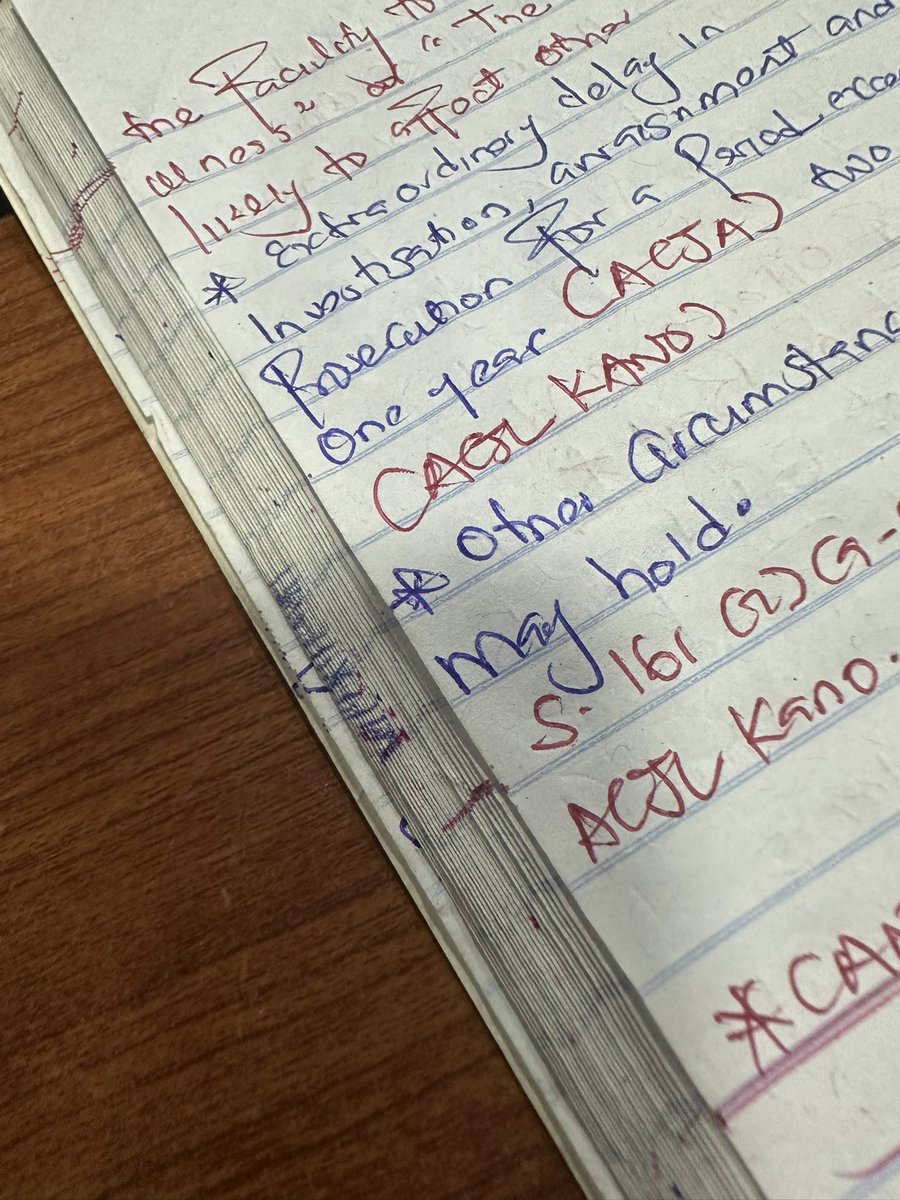 the Faculty to
illness" or "the
likely to affect other
* Extraordinary delay in
Investigation, arraignment and
Prosecution For a Period excee
One year (ACJA) two
(ACJL KANO)
* Other Circumstanc
may hold.
S. 161 (2)(a-
ACJL Kano.
*CAN